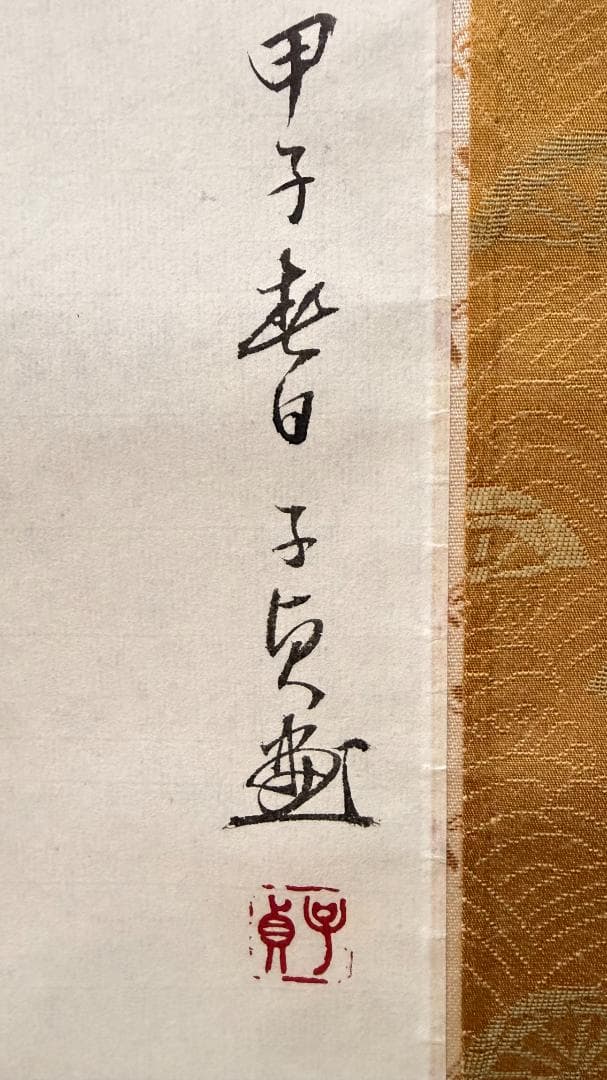 甲子春日子貞畫
子貞